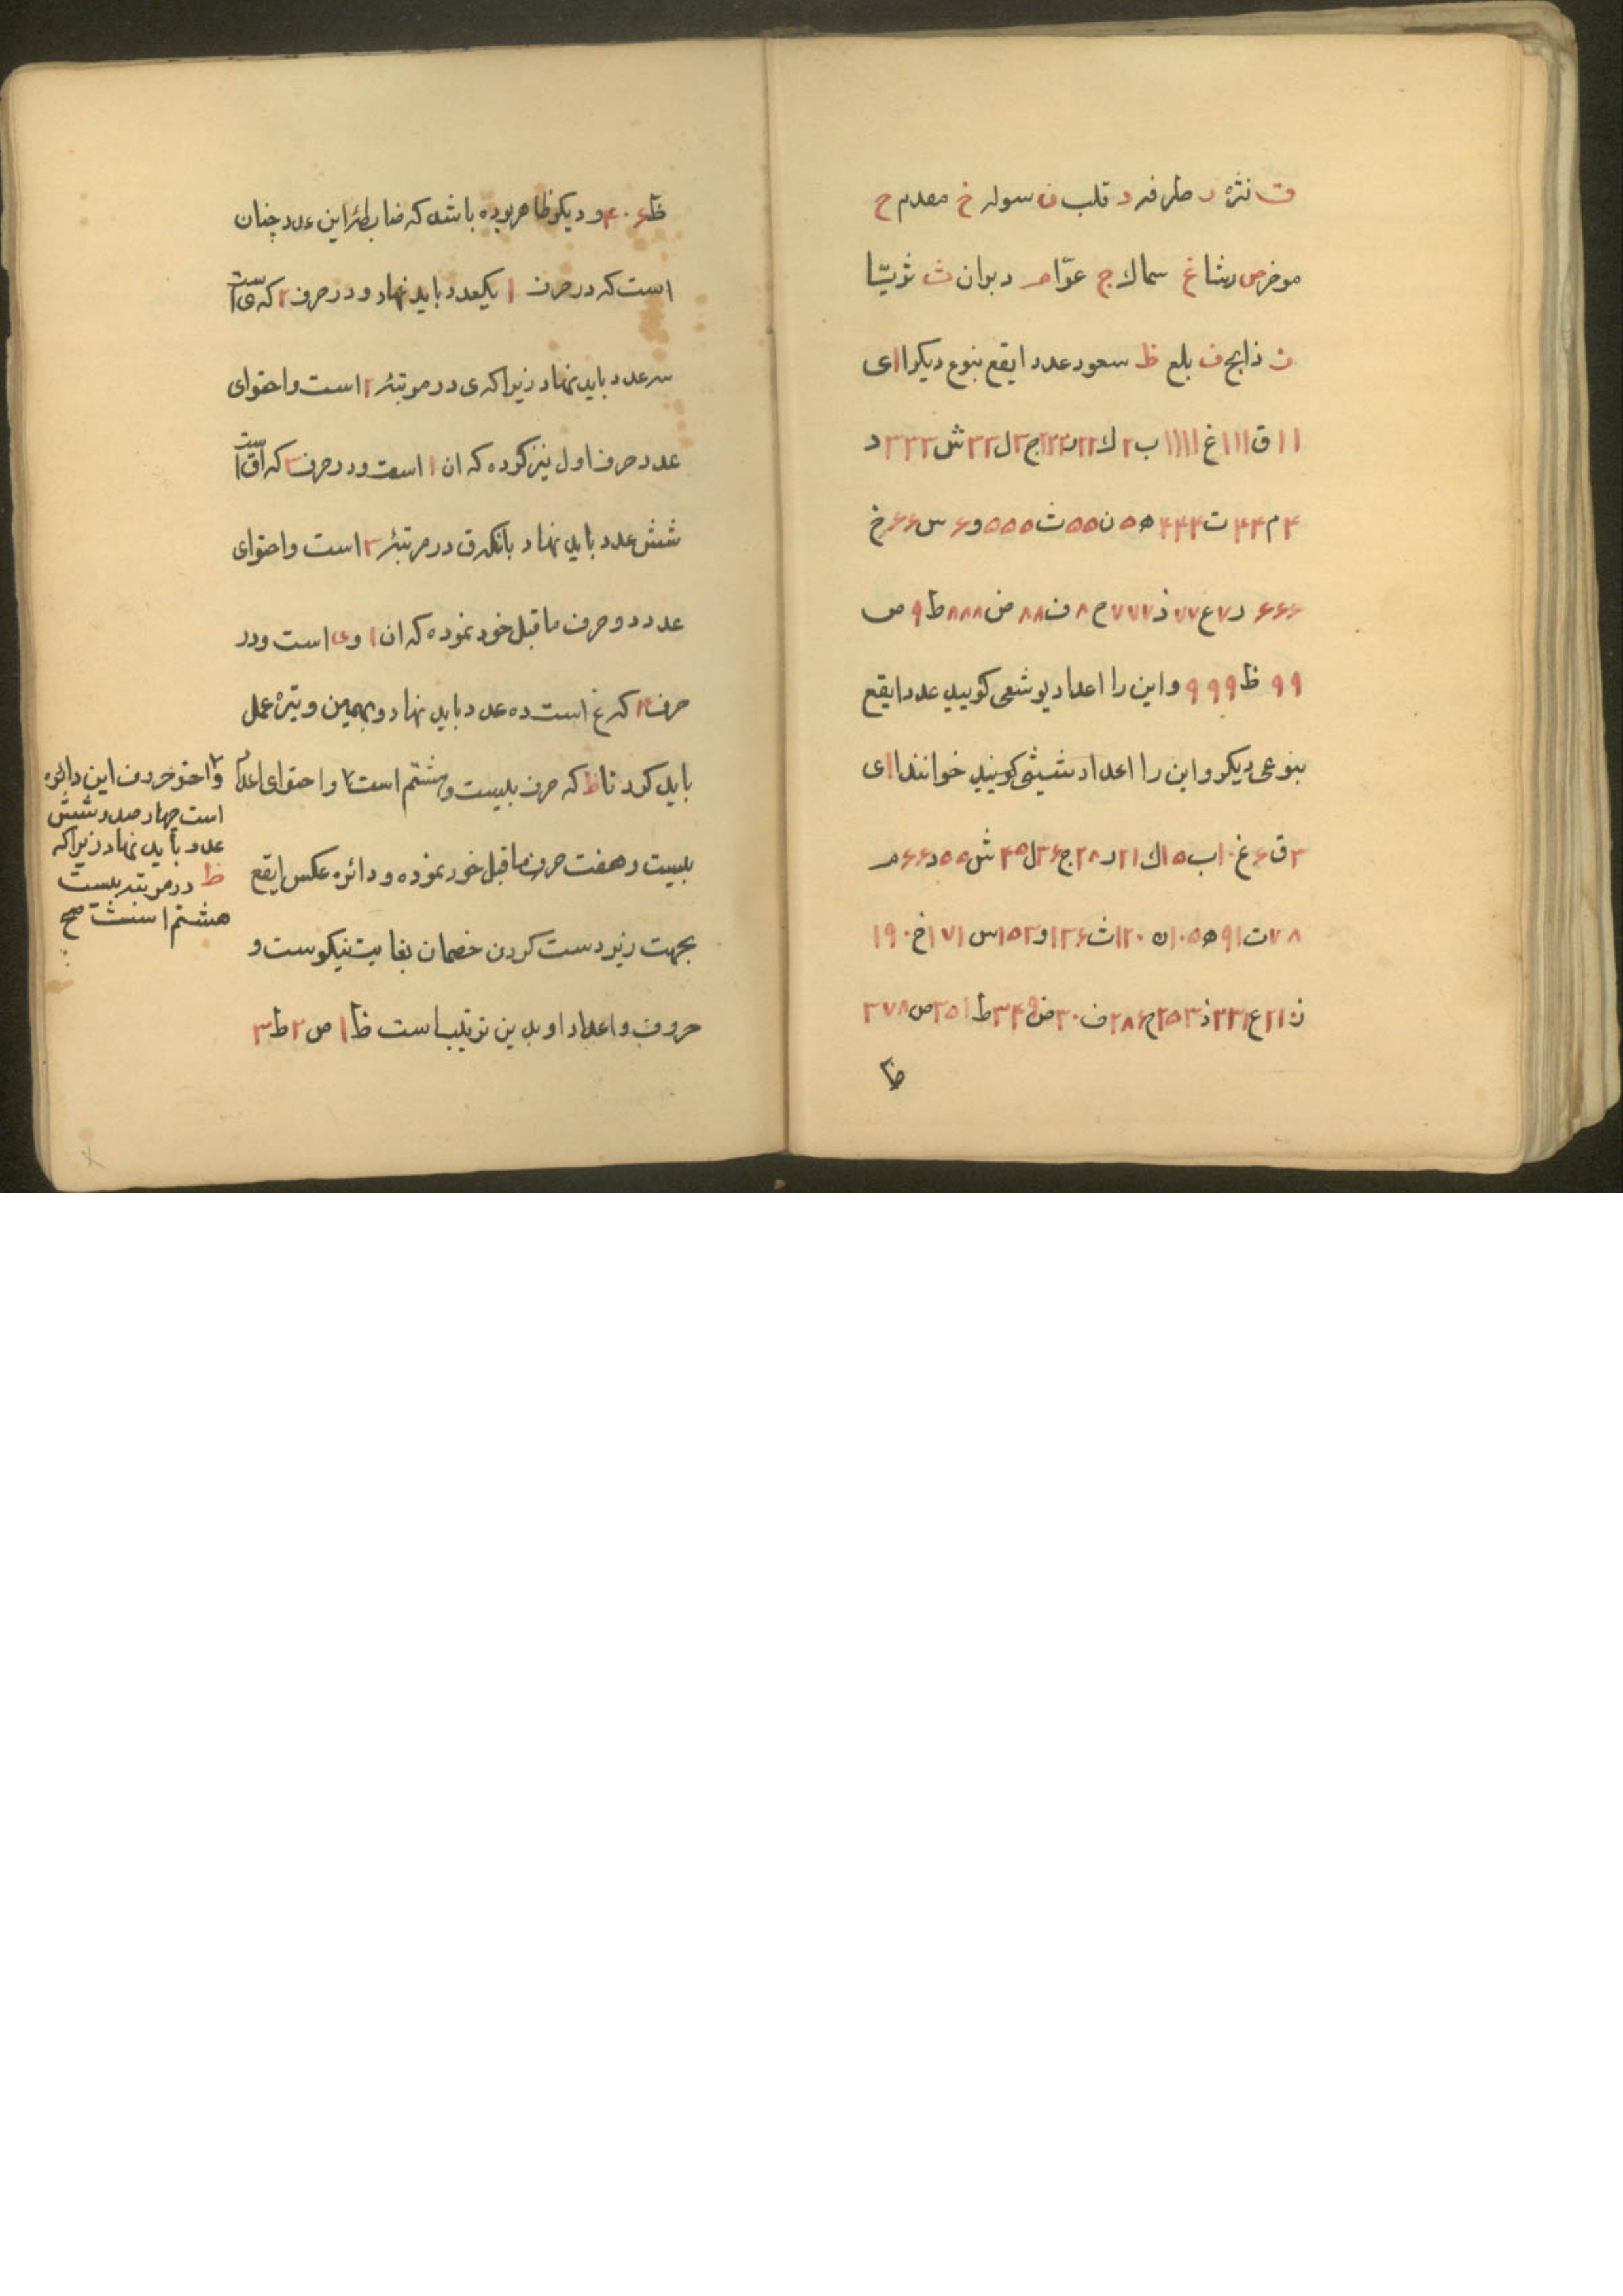 ت نثره ر طرفه د قلب ن سوله خ مقدم ح
موخر ص رشا غ سماك ج عوّا م دبران ث ثریّا
ز ذابح ف بلع ظ سعود عدد ایقع بنوع دیکر ا ا ی
۱۱ ق ۱۱۱ غ ۱۱۱۱ ب ۲ ك ۲۲ ر ۲۲۲ ج ۳ ل ۳۳ ش ۳۳۳ د
۴ م ۴۴ ت ۴۴۴ ه ۵ ن ۵۵ ث ۵۵۵ و ۶ س ۶۶ خ
۶۶۶ ز ۷ ع ۷۷ ذ ۷۷۷ ح ۸ ف ۸۸ ض ۸۸۸ ط ۹ ص
۹۹ ظ ۹۹۹ و این را اعداد یوشعی کویید عدد ایقع
بنوعی دیکر و این را اعداد شیثی کویند خوانند ا ا ی
۳ ق ۶ غ ۱۰ ب ۱۵ ك ۲۱ ر ۲۸ ج ۳۶ ل ۴۵ ش ۵۵ د ۶۶ م
۷۸ ت ۹۱ ه ۱۰۵ ن ۱۲۰ ث ۱۳۶ و ۱۵۳ س ۱۷۱ خ ۱۹۰
ز ۲۱۰ ع ۲۳۱ ذ ۲۵۳ ح ۲۸۶ ف ۳۰۰ ض ۳۴۹ ط ۳۵۱ ص ۳۷۸
ظ
ظ ۴۰۶ و دیکر ظاهر بوده باشد که ضابطۀ این عدد چنان
است که در حرف ۱ یکعدد باید نهاد و در حرف ۲ که ی است
سه عدد باید نهاد زیرا که ی در مرتبۀ ۲ است و احتوای
عدد حرف اول نیز کرده که ان ا است و در حرف ۳ که ق است
شش عدد باید نهاد بانکه ق در مرتبۀ ۳ است و احتوای
عدد دو حرف ماقبل خود نموده که ان ا و ی است و در
حرف ۴ که غ است ده عدد باید نهاد و بهمین وتیره عمل
باید کرد تا ظ که حرف بیست و هشتم است و احتوای اعداد
بیست و هفت حرف ماقبل خود نموده و دائره عکس ایقع
بجهت زیردست کردن خصمان بغایت نیکوست و
حروف و اعداد او بدین ترتیب است ظ ۱ ص ۲ ط ۳
و اخر حروف این دائره
است چهار صد و شش
عدد باید نهاد زیرا که
ظ در مرتبه بیست
هشتم است صح